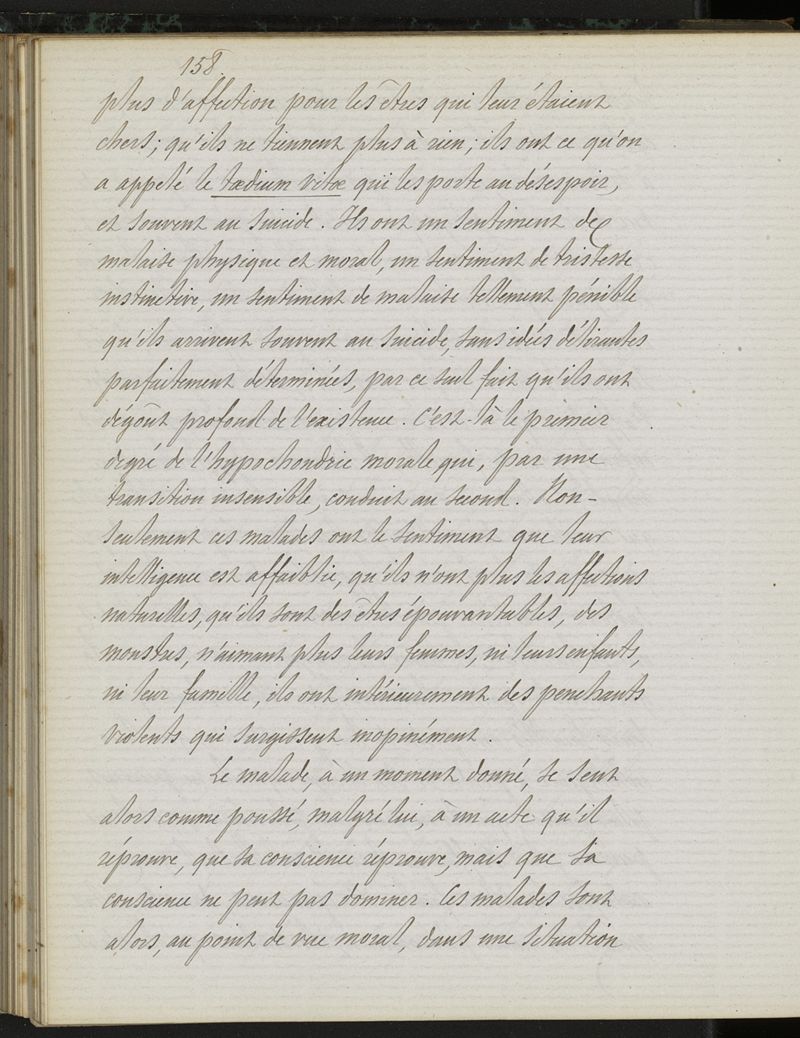 158
plus d'affection pour les êtres qui leur étaient
chers; qu'ils ne tiennent plus à rien; ils ont ce qu'on
a appelé le tædium vitæ qui les porte au désespoir,
et souvent au suicide. Ils ont un sentiment de
malaise physique et moral, un sentiment de tristesse
instinctive, un sentiment de malaise tellement pénible
qu'ils arrivent souvent au suicide, sans idées délirantes
parfaitement déterminées, par ce seul fait qu'ils ont
dégoût profond de l'existence. C'est-là le premier
degré de l'hypochondrie morale qui, par une
transition insensible, conduit au second. Non-
seulement ces malades ont le sentiment que leur
intelligence est affaiblie, qu'ils n'ont plus les affections
naturelles, qu'ils sont des êtres épouvantables, des
monstres, n'aimant plus leurs femmes, ni leurs enfants,
ni leur famille, ils ont intérieurement des penchants
violents qui surgissent inopinément.
Le malade, à un moment donné, se sent
alors comme poussé, malgré lui, à un acte qu'il
réprouve, que sa conscience réprouve, mais que sa
conscience ne peut pas dominer. Ces malades sont
alors, au point de vue moral, dans une situation